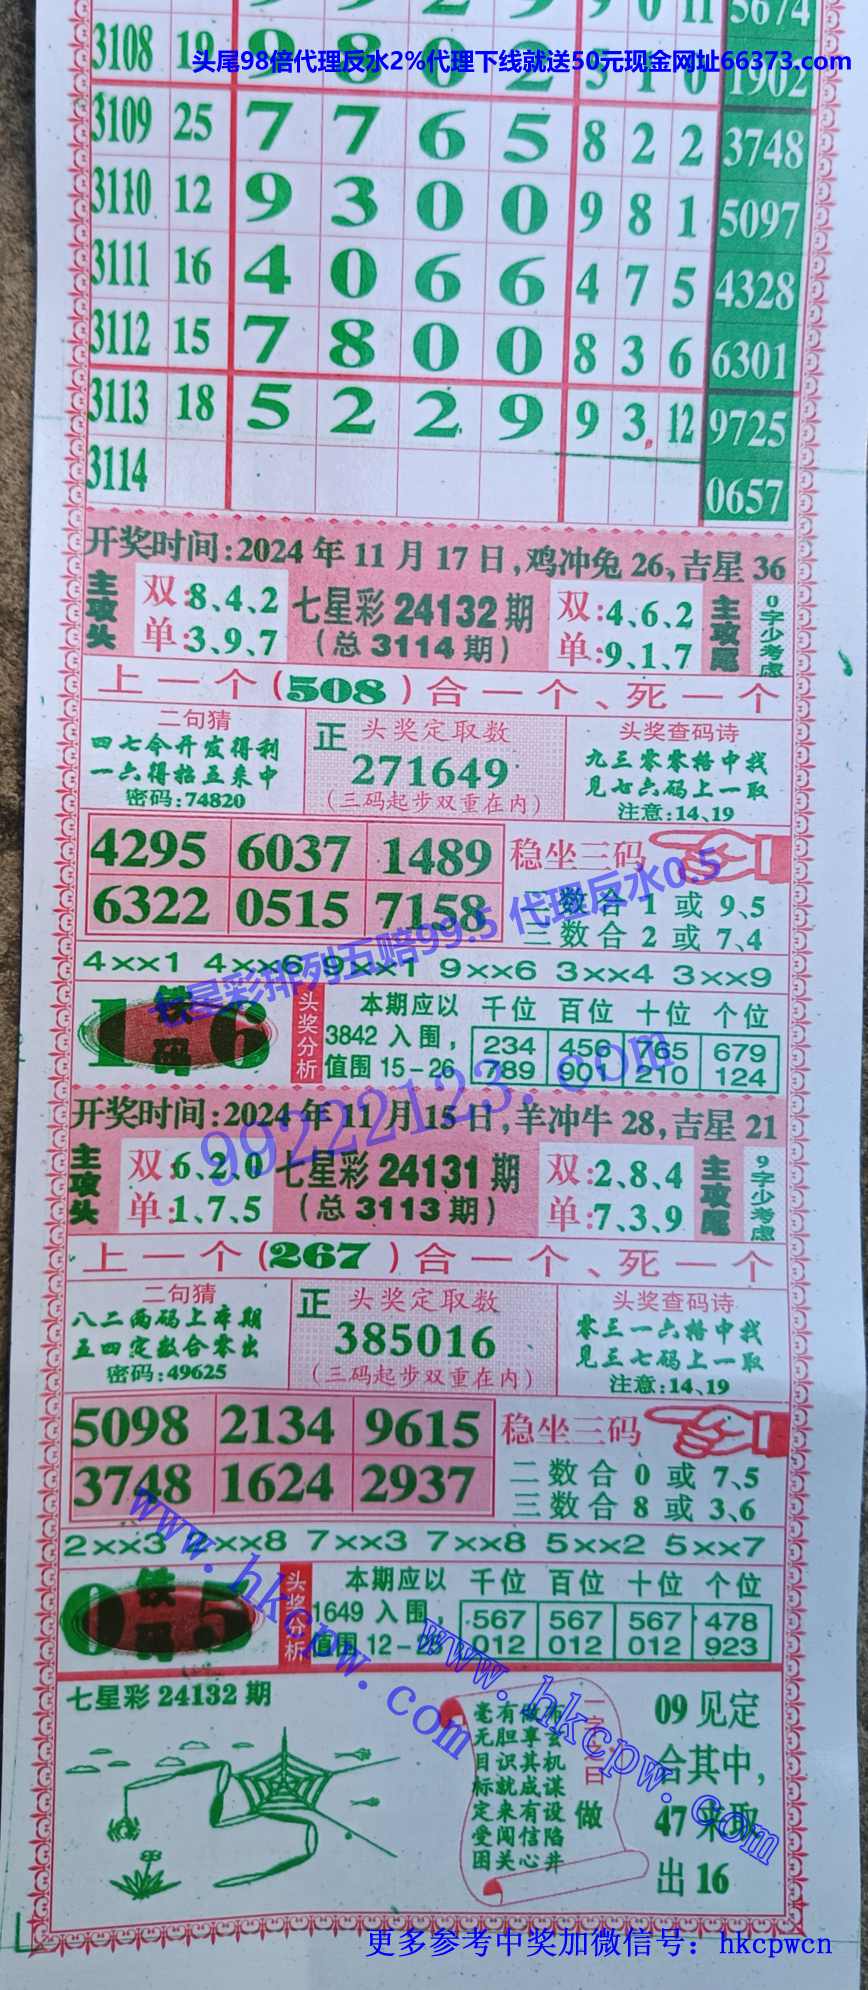 9 9 2 9 9 0 11 5674
3108 19 9 8 0 2 5 1 0 1902
头尾98倍代理反水2%代理下线就送50元现金网址66373.com
3109 25 7 7 6 5 8 2 2 3748
3110 12 9 3 0 0 9 8 1 5097
3111 16 4 0 6 6 4 7 5 4328
3112 15 7 8 0 0 8 3 6 6301
3113 18 5 2 2 9 9 3 12 9725
3114 0657
开奖时间:2024年11月17日,鸡冲兔26,吉星36
主攻头
双:8、4、2
单:3、9、7
七星彩24132期
(总3114期)
双:4、6、2
单:9、1、7
主攻尾
0字少考虑
上一个(508)合一个、死一个
二句猜
四七令开发得利
一六得抬五来中
密码:74820
正
头奖定取数
271649
(三码起步双重在内)
头奖查码诗
九三零零格中找
见七六码上一取
注意:14、19
4295 6037 1489
6322 0515 7158
稳坐三码
二数合1或9、5
三数合2或7、4
4××1 4××6 9××1 9××6 3××4 3××9
七星彩排列五赔99.5 代理反水0.5
1 铁码 6
头奖分析
本期应以
3842入围,
值围15-26
千位 百位 十位 个位
234 456 765 679
789 901 210 124
99222123.com
开奖时间:2024年11月15日,羊冲牛28,吉星21
主攻头
双:6、2、0
单:1、7、5
七星彩24131期
(总3113期)
双:2、8、4
单:7、3、9
主攻尾
9字少考虑
上一个(267)合一个、死一个
二句猜
八二两码上本期
五四定数合零出
密码:49625
正
头奖定取数
385016
(三码起步双重在内)
头奖查码诗
零三一六格中找
见三七码上一取
注意:14、19
5098 2134 9615
3748 1624 2937
稳坐三码
二数合0或7、5
三数合8或3、6
2××3 2××8 7××3 7××8 5××2 5××7
0 铁码 5
头奖分析
本期应以
1649入围,
值围12-25
千位 百位 十位 个位
567 567 567 478
012 012 012 923
www.hkcpw.com
www.hkcpw.com
七星彩24132期
一字之曰
做
毫有做
无胆享玄
目识其机
标就成谋
定来有设
受闻信陷
困关心井
09见定
合其中,
47来取
出16
更多参考中奖加微信号：hkcpwcn